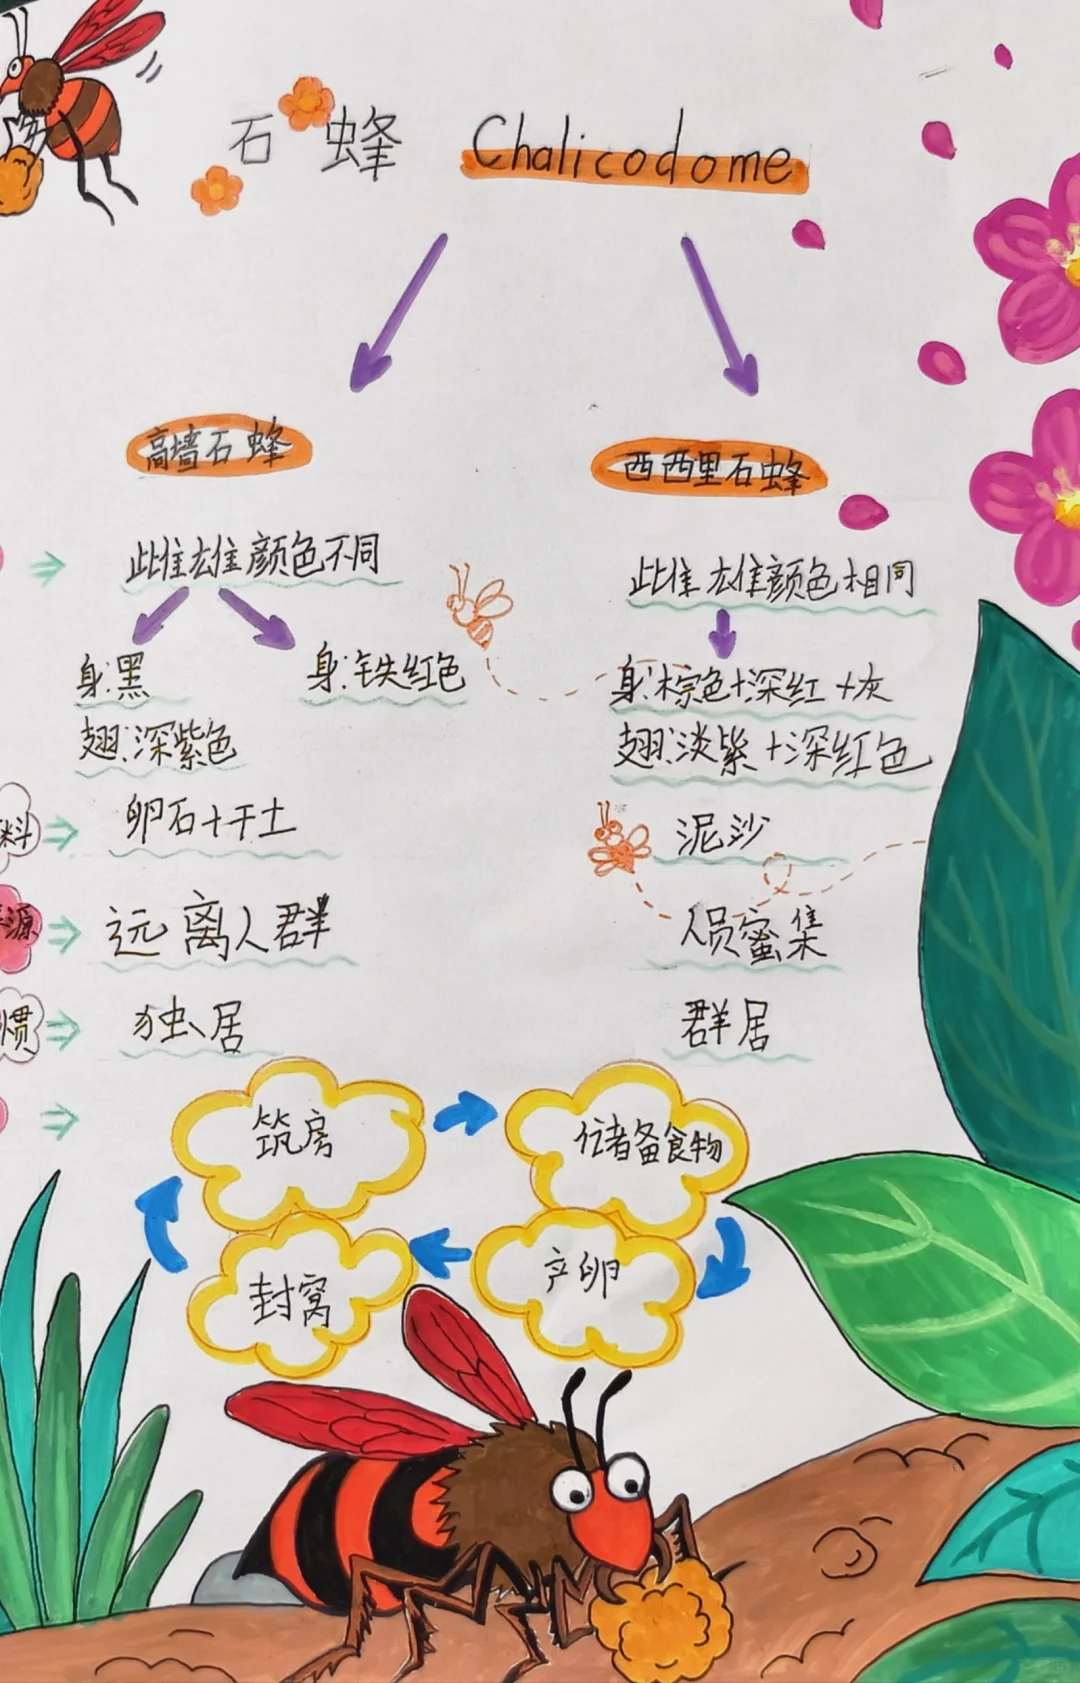 石蜂 Chalicodome
高墙石蜂
西西里石蜂
雌雄颜色不同
雌雄颜色相同
身:黑
身:铁红色
身:棕色+深红+灰
翅:深紫色
翅:淡紫+深红色
料
卵石+干土
泥沙
源
远离人群
人员蜜集
惯
独居
群居
筑房
储备食物
封窝
产卵